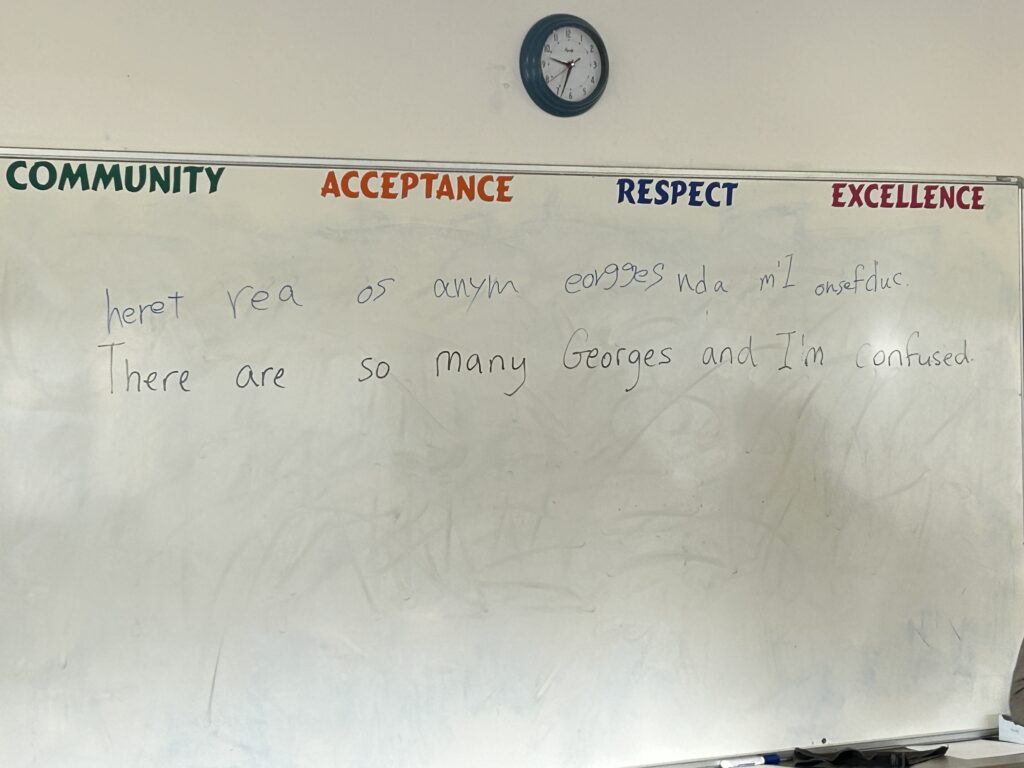 COMMUNITY ACCEPTANCE RESPECT EXCELLENCE
heret rea os anym eorgges nda m'I onsefduc.
There are so many Georges and I'm confused.